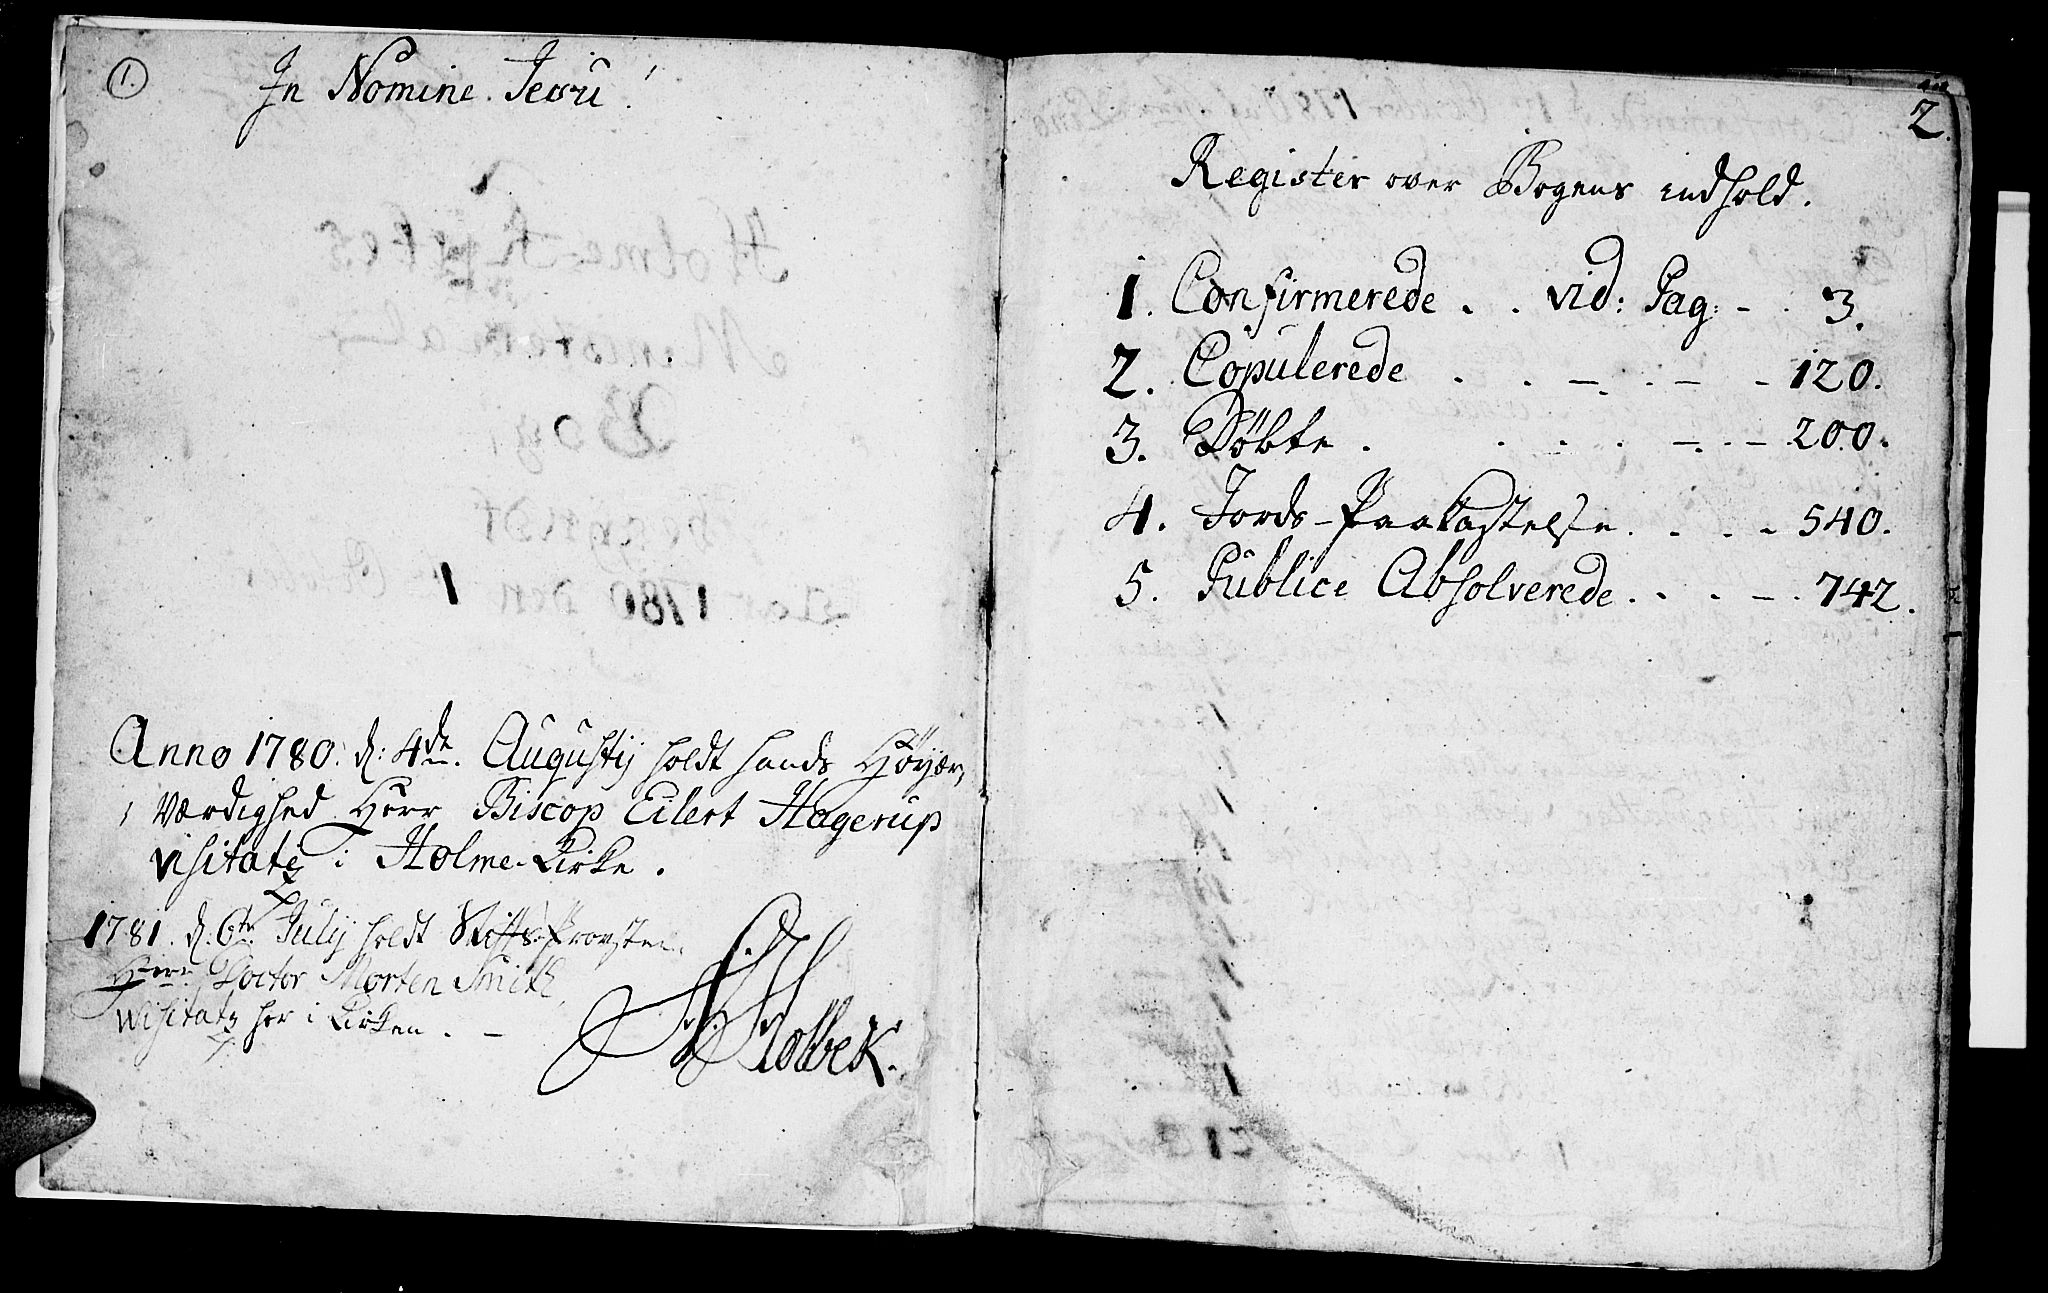 1.
In Nomine Jesu!
Anno 1780. d: 4de. Augustij holdt hands Høyær,
Værdighed Herr Biscop Eilert Hagerup
Visitatz i Holme-Kirke.
1781. d: 6te July holdt Stifts-Provsten
Herr Doctor Morten Smith,
Wisitatz her i Kirken. -
Holbek.
2.
Register over Bogens indhold.
1. Confirmerede . . vid: Pag: - . 3.
2. Copulerede . . - . - - 120.
3. Døbte . . . . - . - 200.
4. Jords-Paakastelse . . . - 540.
5. Publice Absolverede . . . - . 742.